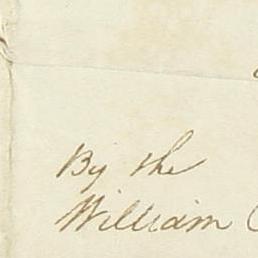 By the
William